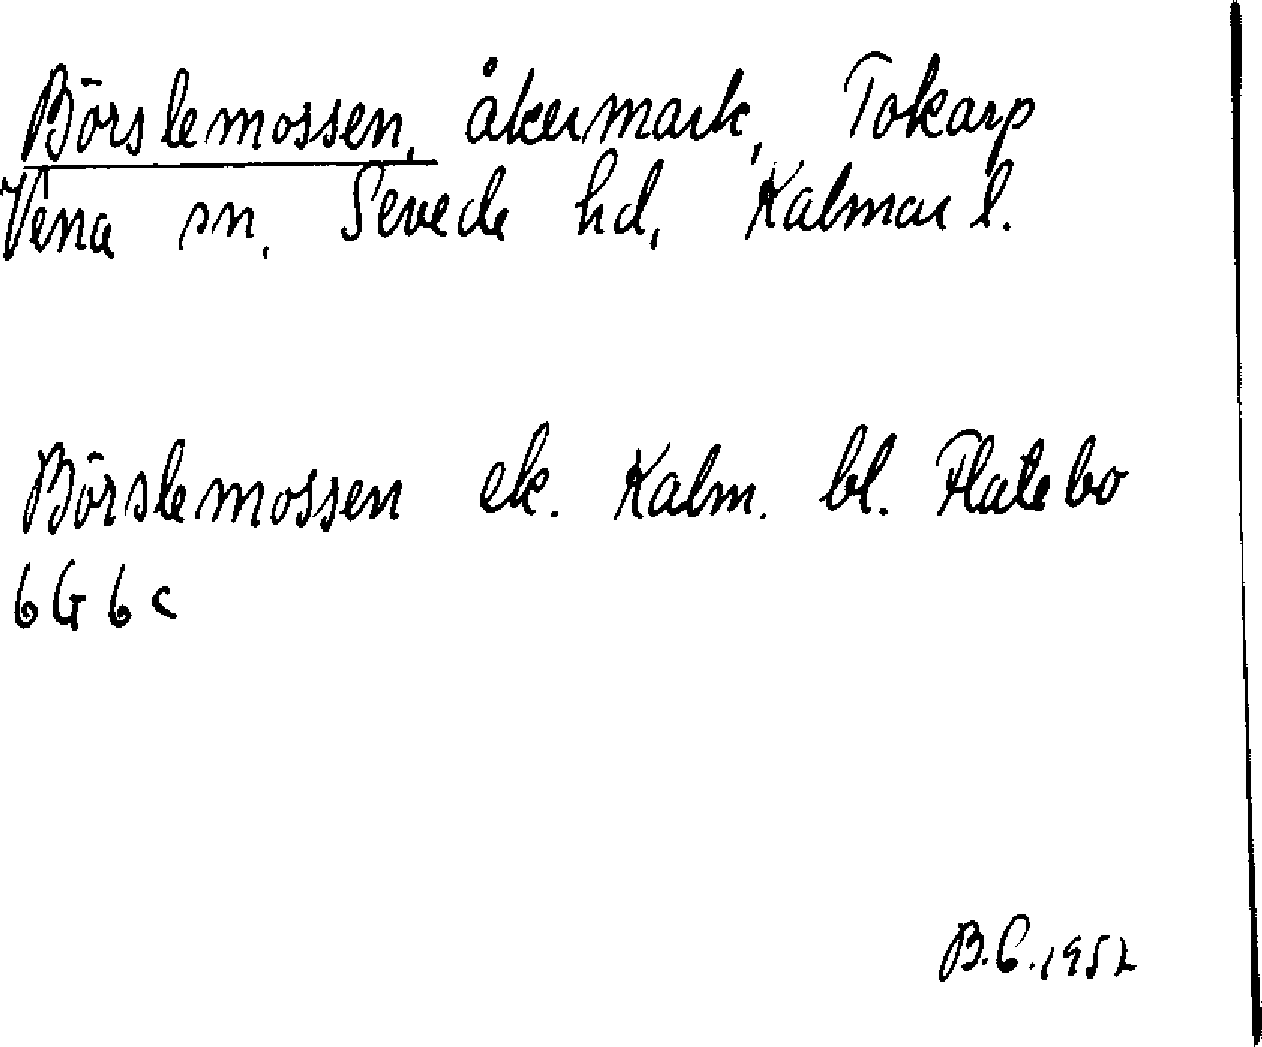 Börslemossen, åkermark, Tokarp
Vena sn, Sevede hd, Kalmar l.
Börslemossen ek. Kalm. bl. Flatebo
6G 6c
B.E. 1952